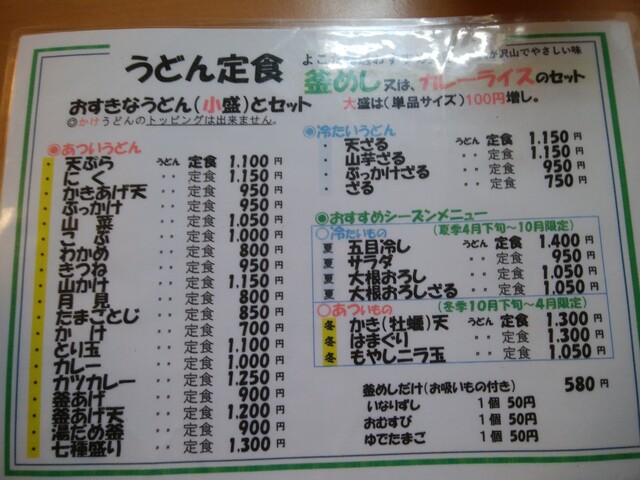 うどん定食
よこ
が沢山でやさしい味
釜めし又は、カレーライスのセット
おすきなうどん(小盛)とセット
大盛は(単品サイズ)100円増し。
◎かけうどんのトッピングは出来ません。
◉あついうどん
・天ぷら うどん 定食 1.100円
・にく 〃 定食 1.150円
・かきあげ天 〃 定食 950円
・ぶっかけ 〃 定食 950円
・山菜 〃 定食 1.050円
・こぶ 〃 定食 1.000円
・わかめ 〃 定食 800円
・きつね 〃 定食 950円
・山かけ 〃 定食 1.150円
・月見 〃 定食 800円
・たまごとじ 〃 定食 850円
・かけ 〃 定食 700円
・とり玉 〃 定食 1.100円
・カレー 〃 定食 1.000円
・カツカレー 〃 定食 1.250円
・釜あげ 〃 定食 900円
・釜あげ天 〃 定食 1.200円
・湯ため釜 〃 定食 900円
・七種盛り 〃 定食 1.300円
◉冷たいうどん
・天ざる うどん 定食 1.150円
・山芋ざる 〃 定食 1.150円
・ぶっかけざる 〃 定食 950円
・ざる 〃 定食 750円
◉おすすめシーズンメニュー
○冷たいもの (夏季4月下旬〜10月限定)
夏 五目冷し うどん 定食 1.400円
夏 サラダ 〃 定食 950円
夏 大根おろし 〃 定食 1.050円
夏 大根おろしざる 〃 定食 1.050円
○あついもの (冬季10月下旬〜4月限定)
冬 かき(牡蠣)天 うどん 定食 1.300円
冬 はまぐり 〃 定食 1.300円
冬 もやしニラ玉 〃 定食 1.050円
釜めしだけ(お吸いもの付き) 580円
いなりずし 1個 50円
おむすび 1個 50円
ゆでたまご 1個 50円